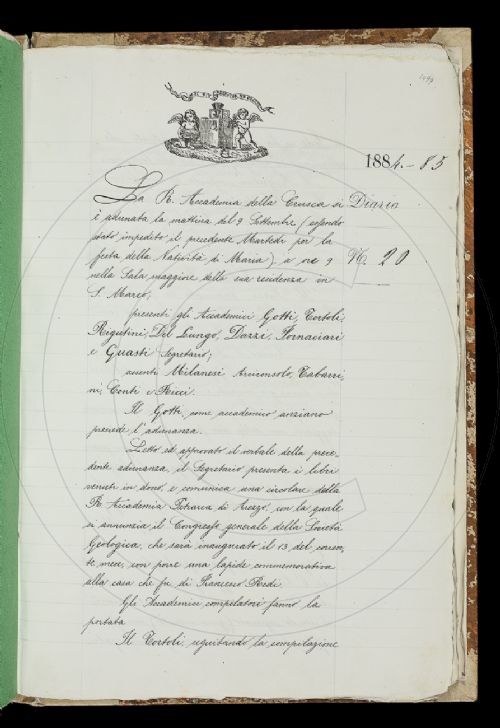 1884.-85
La R. Accademia della Crusca si
Diario
è adunata la mattina del 9 Settembre (essendo
stato impedito il precedente Martedì per la
festa della Natività di Maria), a ore 9
N. 20
nella Sala maggiore della sua residenza in
S. Marco;
presenti gli Accademici Gotti, Tortoli,
Rigutini, Del Lungo, Dazzi, Fornaciari
e Guasti Segretario;
assenti Milanesi Arciconsolo, Tabarri-
ni, Conti e Ricci.
Il Gotti, come accademico anziano
presiede l'adunanza.
Letto ed approvato il verbale della prece-
dente adunanza, il Segretario presenta i libri
venuti in dono, e comunica una circolare della
R. Accademia Petrarca di Arezzo, con la quale
si annunzia il Congresso generale della Società
Geologica, che sarà inaugurato il 13 del corren-
te mese, con porre una lapide commemorativa
alla casa che fu di Francesco Redi.
Gli Accademici compilatori fanno la
portata
Il Tortoli, seguitando la compilazione